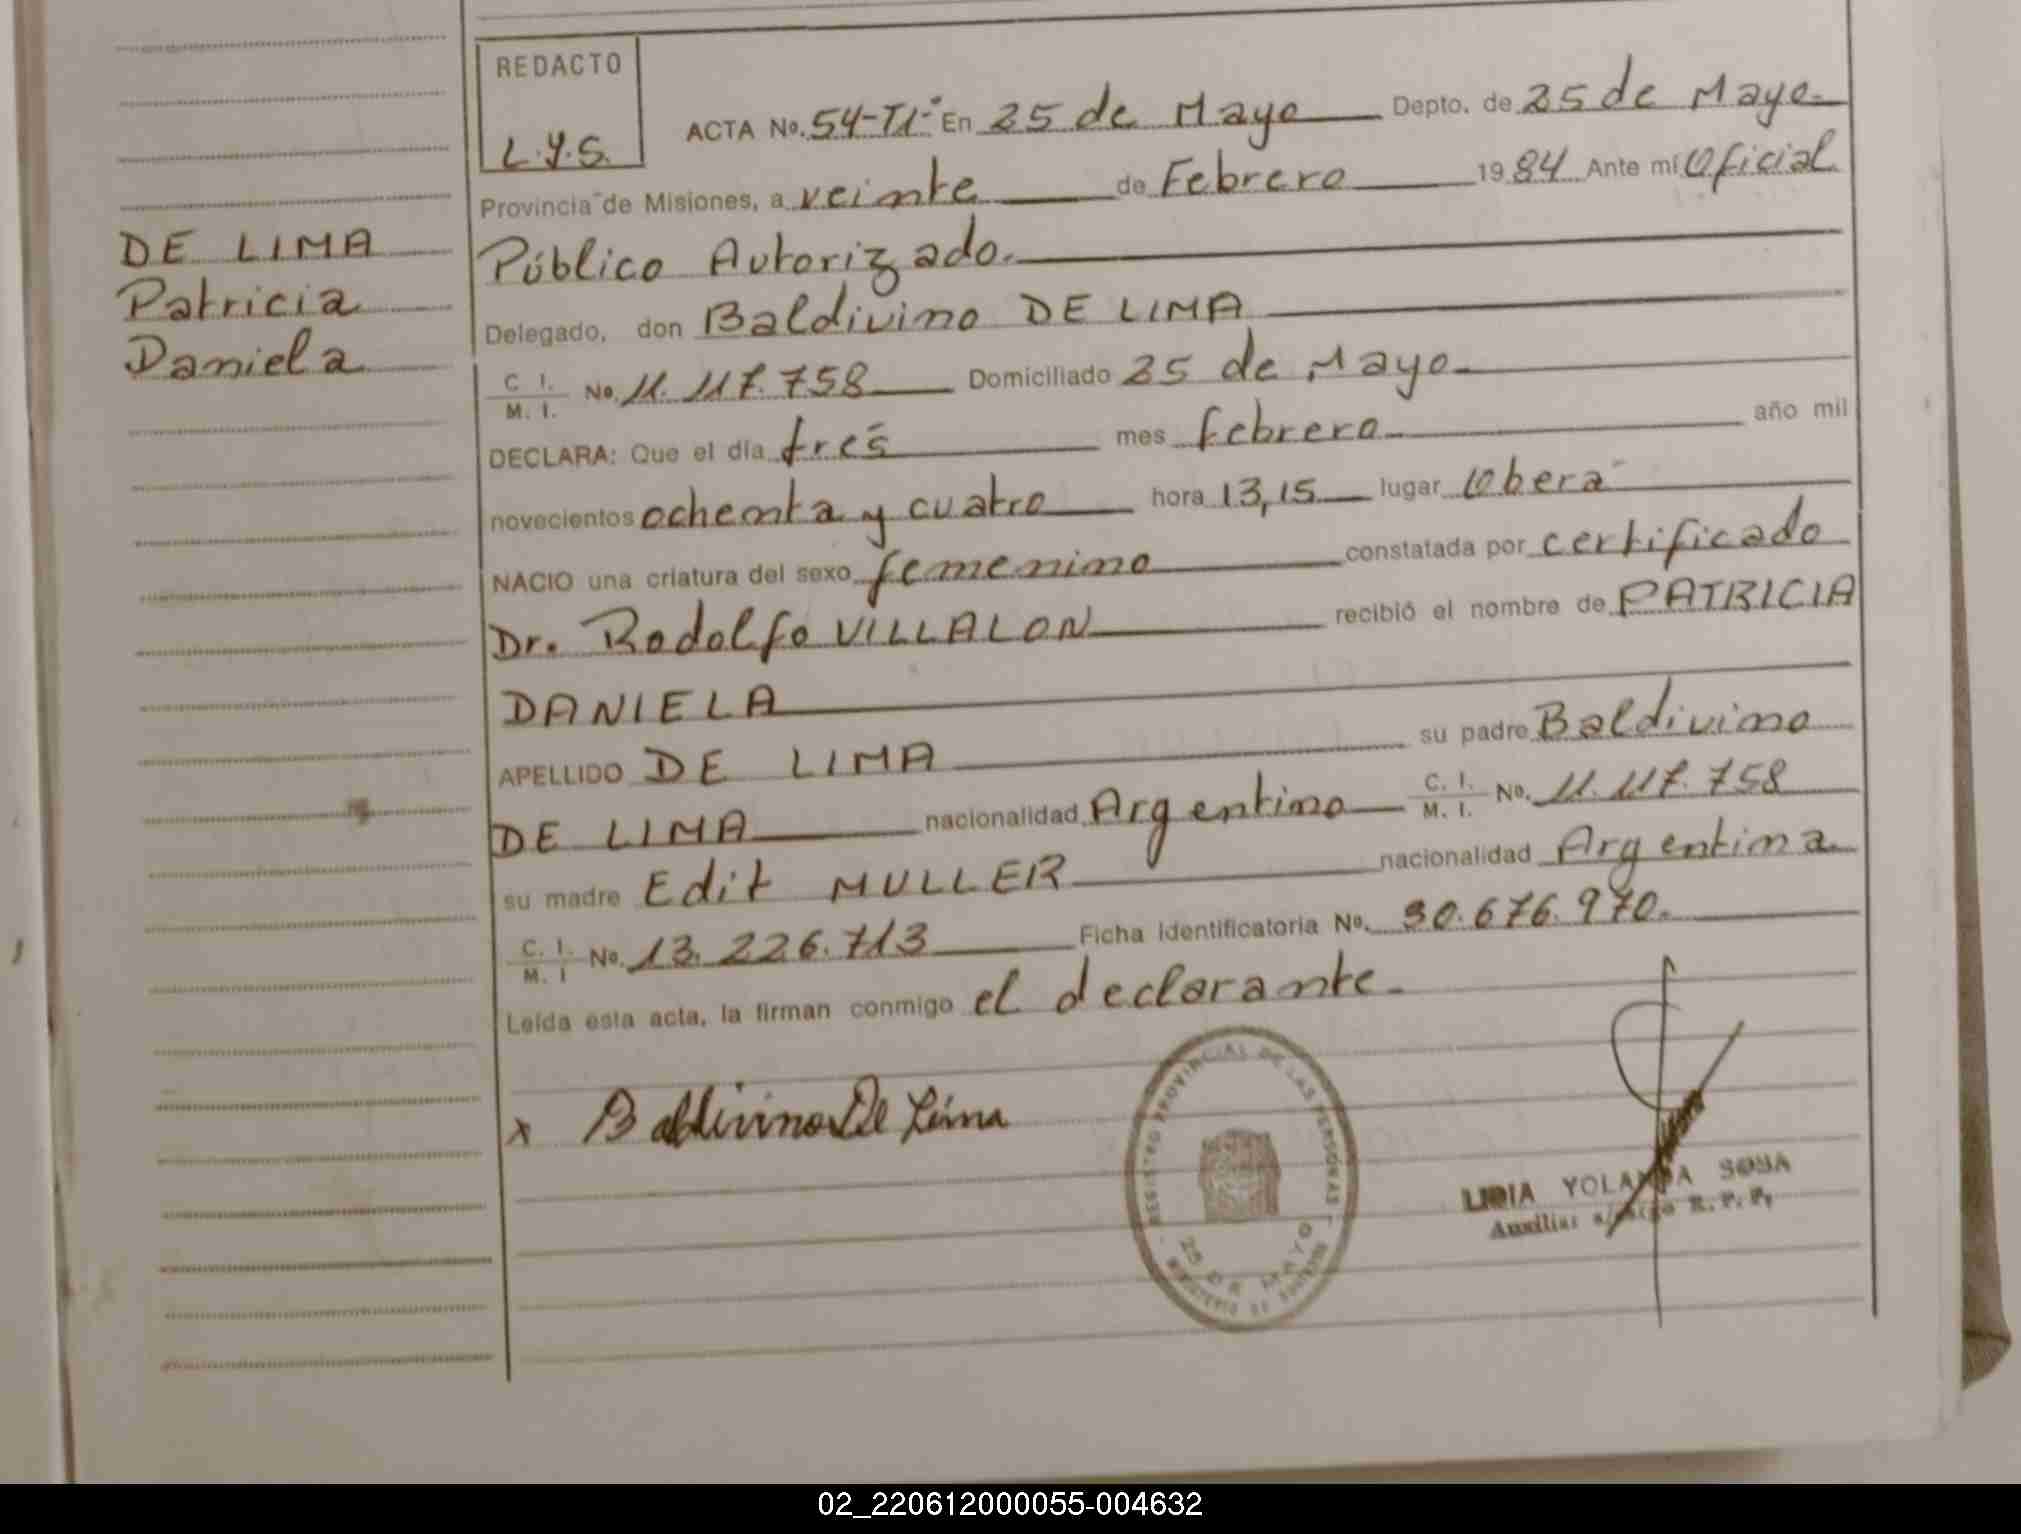 REDACTO
L.Y.S.
ACTA No. 54-T1°- En 25 de Mayo Depto. de 25 de Mayo.
Provincia de Misiones, a veinte de Febrero 1984 Ante mí Oficial
Público Autorizado.
Delegado, don Baldivino DE LIMA
C. I. / M. I. No. 11.117.758 Domiciliado 25 de Mayo.
DECLARA: Que el día tres mes febrero año mil
novecientos ochenta y cuatro hora 13,15 lugar Oberá
NACIO una criatura del sexo femenino constatada por certificado
Dr. Rodolfo VILLALON recibió el nombre de PATRICIA
DANIELA
APELLIDO DE LIMA su padre Baldivino
DE LIMA nacionalidad Argentino C. I. / M. I. No. 11.117.758
su madre Edit MULLER nacionalidad Argentina
C. I. / M. I No. 13.226.713 Ficha identificatoria No. 30.676.970.
Leída esta acta, la firman conmigo el declarante.
DE LIMA
Patricia
Daniela
x Baldivino De Lima
REGISTRO PROVINCIAL DE LAS PERSONAS
25 DE MAYO
MINISTERIO DE GOBIERNO
LIDIA YOLANDA SOSA
Auxiliar a/cargo R. P. P.
02_220612000055-004632